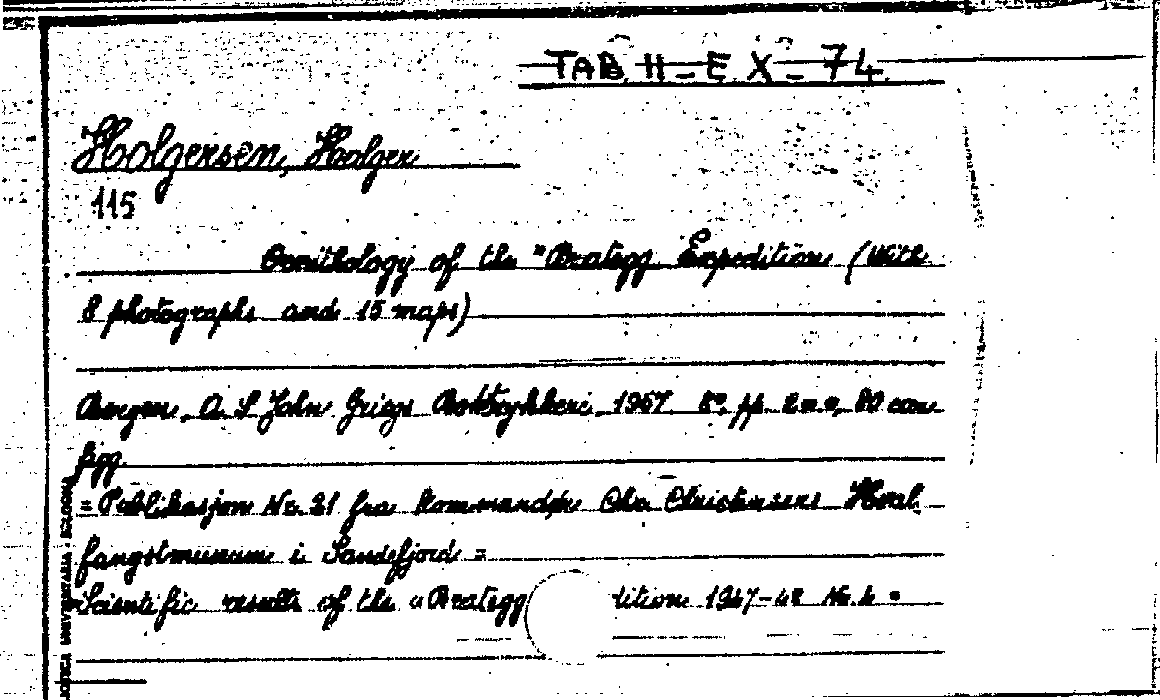 TAB H-E X-74
Holgersen, Holger
115
Ornithology of the "Brategg Expedition (with
8 photographs and 15 maps)
Bergen, A S John Griegs Boktrykkeri, 1957 8°, pp. 80 con
figg.
= Publikasjon Nr. 21 fra Kommandør Chr. Christensens Hval
fangstmuseum i Sandefjord =
Scientific results of the "Brategg dition 1947-48 Nr. 4 =
UNIVERSITARIA BOLOGNA